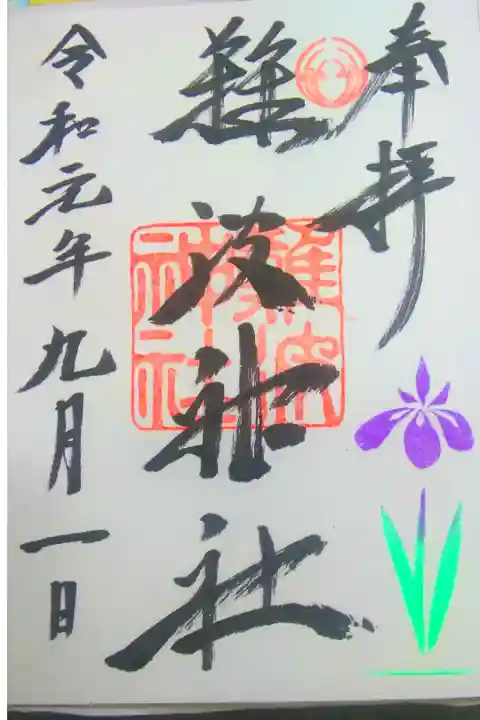 奉拝
難波神社
難波神社
令和元年九月一日